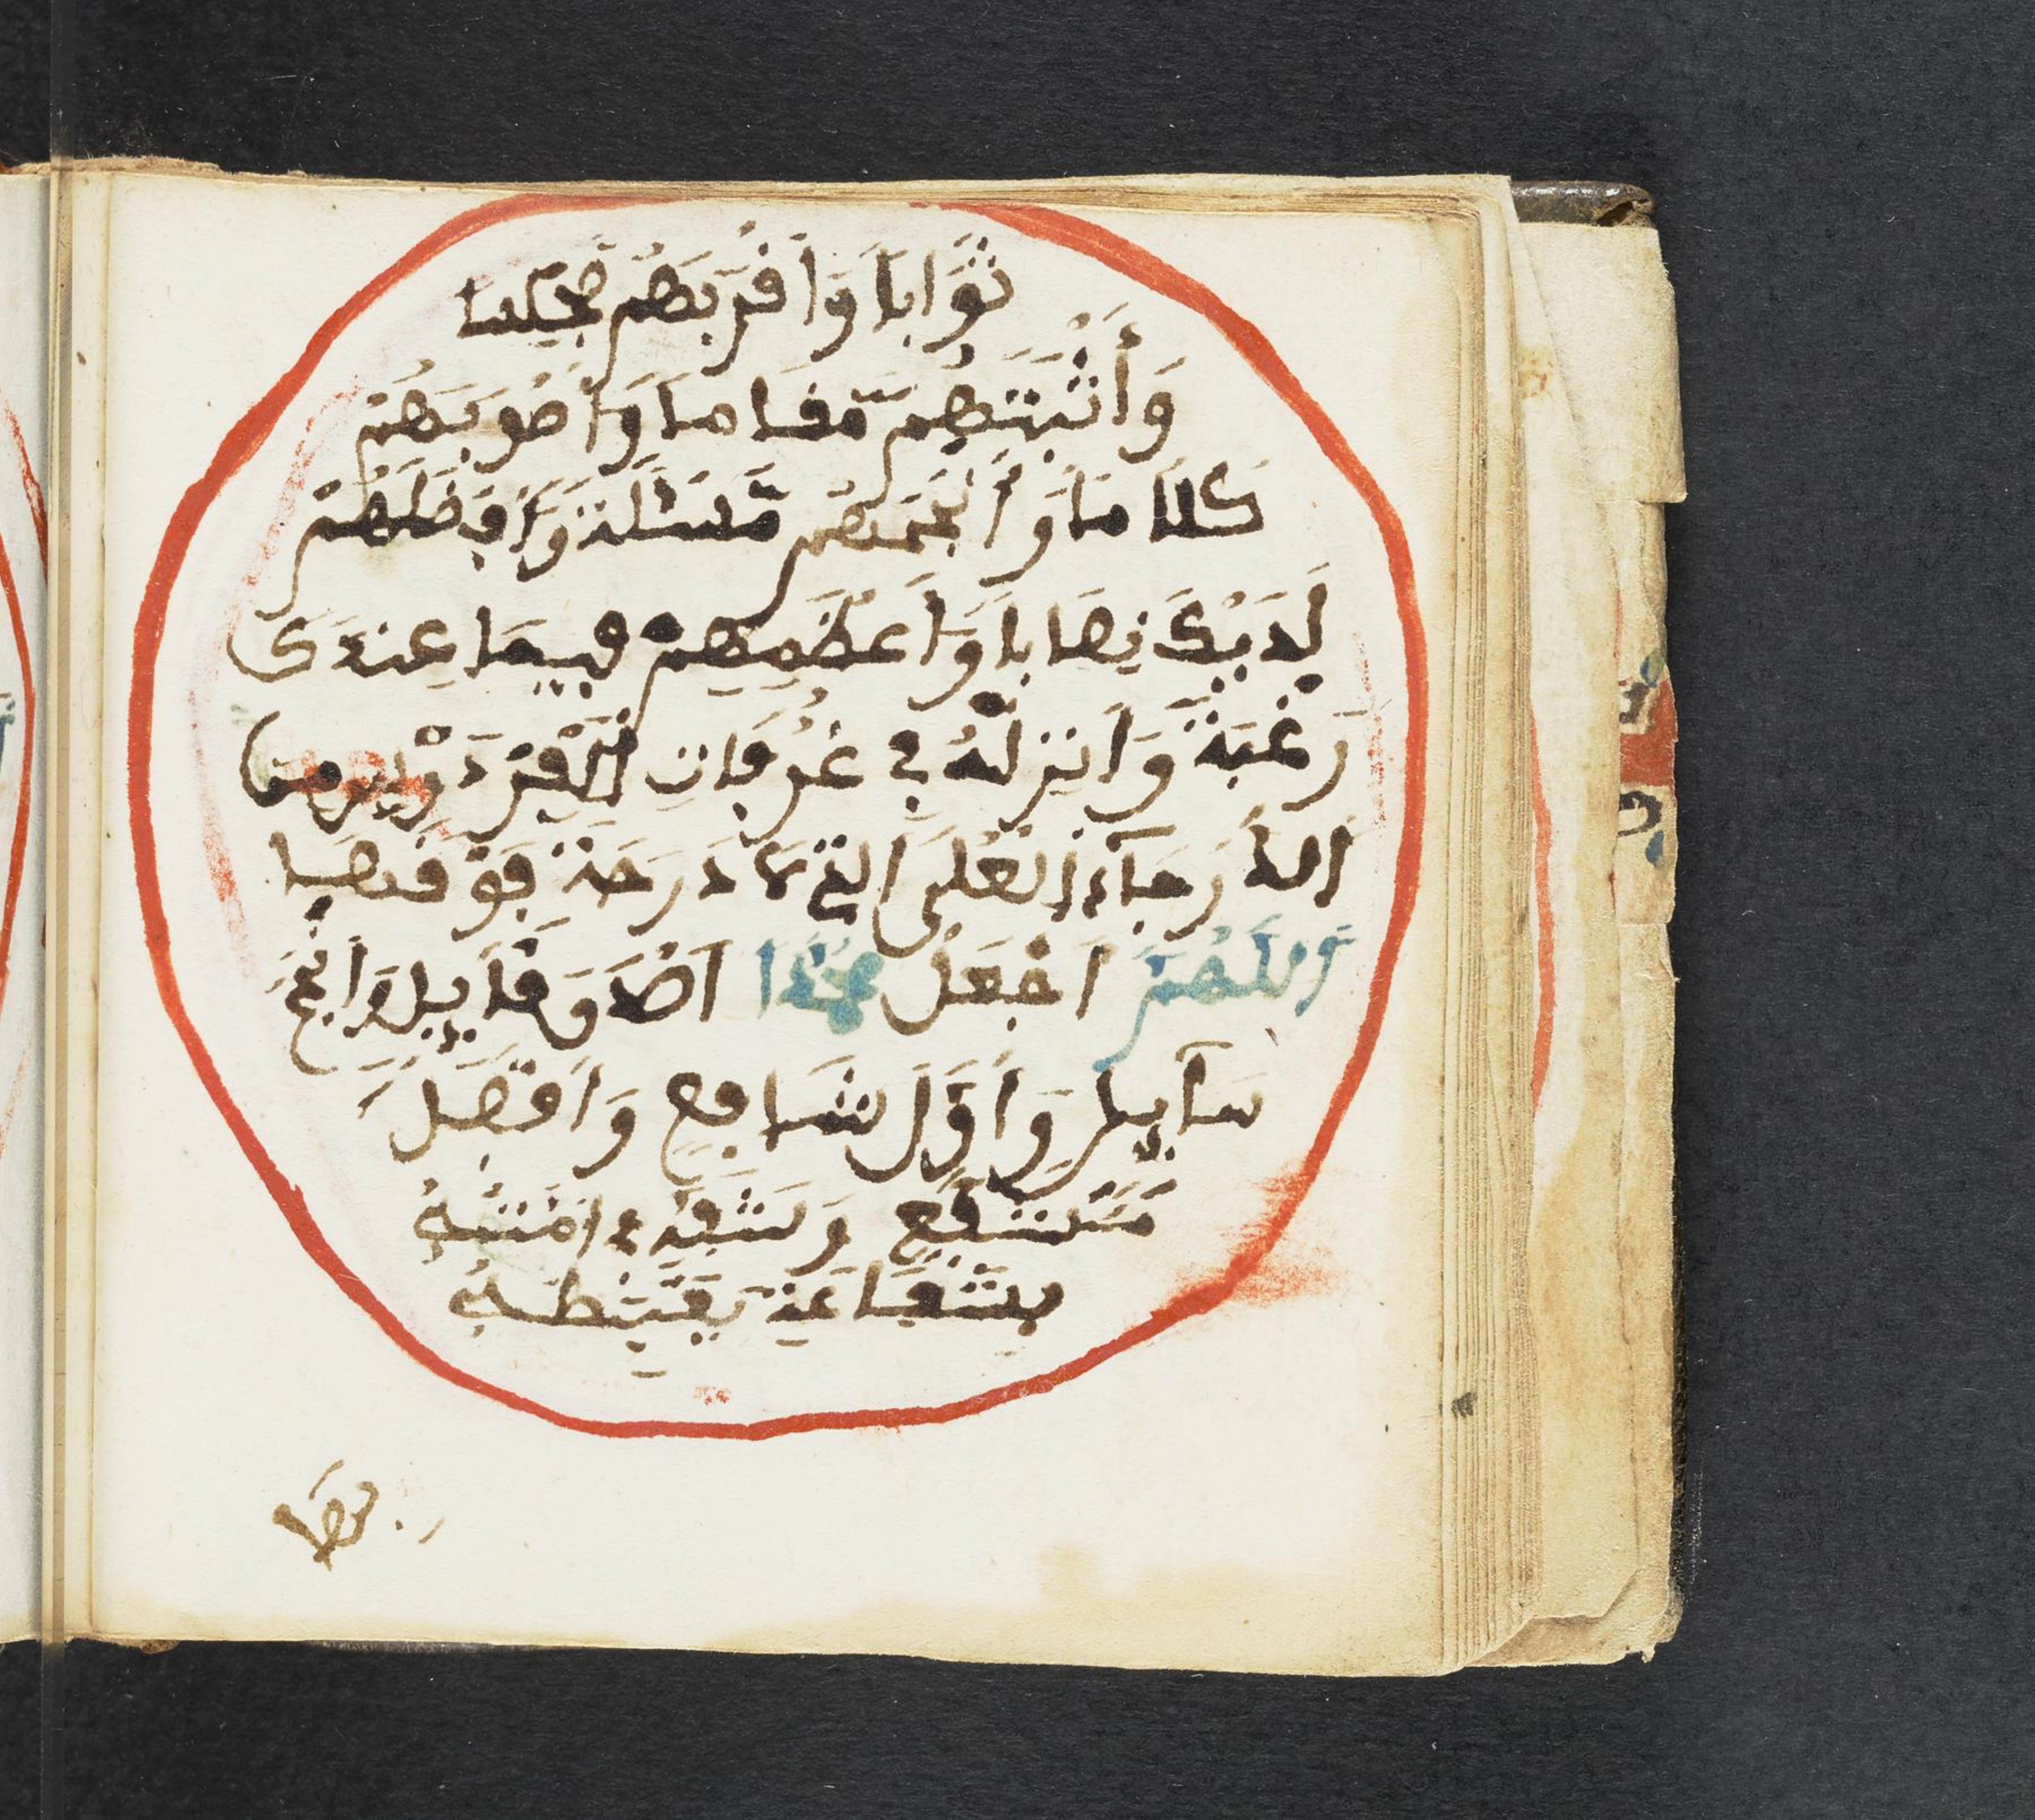 ثَوَابًا وَأَقْرَبَهُمْ مَجْلِسًا
وَأَثْبَتَهُمْ مَّقَامًا وَأَصْوَبَهُمْ
كَلَامًا وَأَنْجَحَهُمْ مَّسْئَلَةً وَأَفْضَلَهُمْ
لَدَيْكَ نِصَابًا وَأَعْظَمَهُمْ فِيمَا عِنْدَكَ
رَغْبَةً وَأَنْزِلْهُ فِي غُرُفَاتِ الْفِرْدَوْسِ مِنَ
الدَّرَجَاتِ الْعُلَى الَّتِي لَا دَرَجَةَ فَوْقَهَا
اللَّهُمَّ اجْعَلْ مُحَمَّدًا أَصْدَقَ قَآيِلٍ وَأَنْجَحَ
سَآيِلٍ وَأَوَّلَ شَافِعٍ وَأَفْضَلَ
مُشَفَّعٍ وَشَفِّعْهُ فِي أُمَّتِهِ
بِشَفَاعَةٍ يَغْبِطُهُ
بها